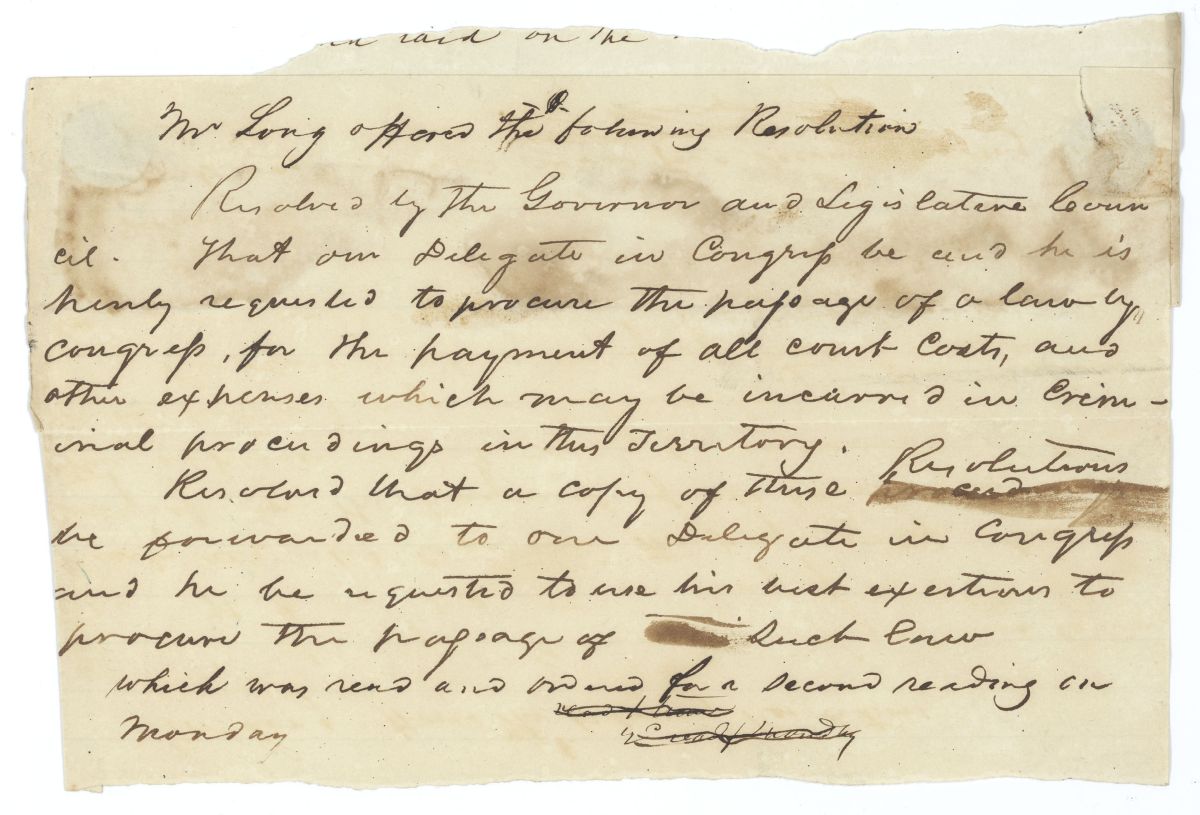 laid on the
Mr Long offered the following Resolution
Resolved by the Governor and Legislative Coun
cil. That our Delegate in Congress be and he is
hereby requested to procure the passage of a law by
congress, for the payment of all court Costs, and
other expenses which may be incurred in Crim-
inal proceedings in this Territory.
Resolutions
Resolved that a copy of these
be forwarded to our Delegate in Congress
and he be requested to use his best exertions to
procure the passage of Such law
which was read and ordered for a second reading on
Monday